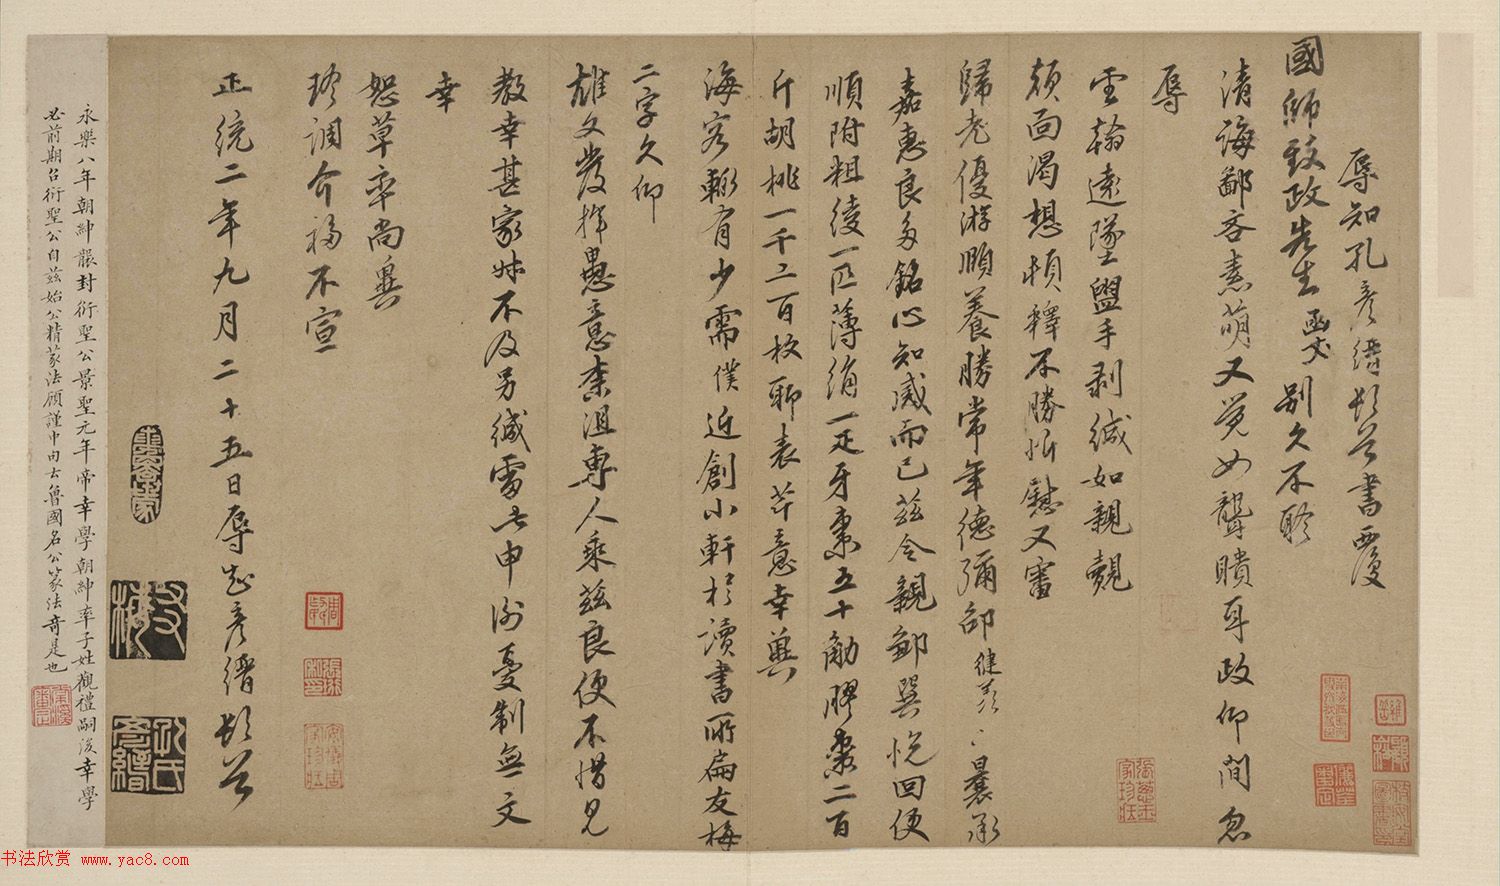 辱知孔彥縉頓首書覆
國師致政先生函丈別久不聆
清誨鄙吝素萌又覺如聾瞶耳政仰間忽
辱
雲翰遠墜盥手剥緘如親覿
顏面渴想頓釋不勝忻慰又審
歸老優游頤養勝常年德彌卲健羨〻曩承
嘉惠良多銘心知感而已茲令親鄒巽悅回便
順附粗綾一匹薄絹一疋牙棗五十觔膠棗二百
斤胡桃一千二百枚聊表芹意幸與
海客輙有少需僕近創小軒於讀書所扁友梅
二字久仰
雄文發揮愚意率沮專人乘茲良便不惜見
教幸甚家妹不及另緘需此申謝憂制無文
幸
恕草率尚冀
珍調介福不宣
正統二年九月二十五日辱知彥縉頓首
友梅
孔氏彥縉
永樂八年朝紳襲封衍聖公景聖元年帝幸學朝紳率子姓觀禮嗣後幸學
必前期召衍聖公自茲始公精篆法顧謹中句云魯國名公篆法奇是也
书法欣赏 www.yac8.com